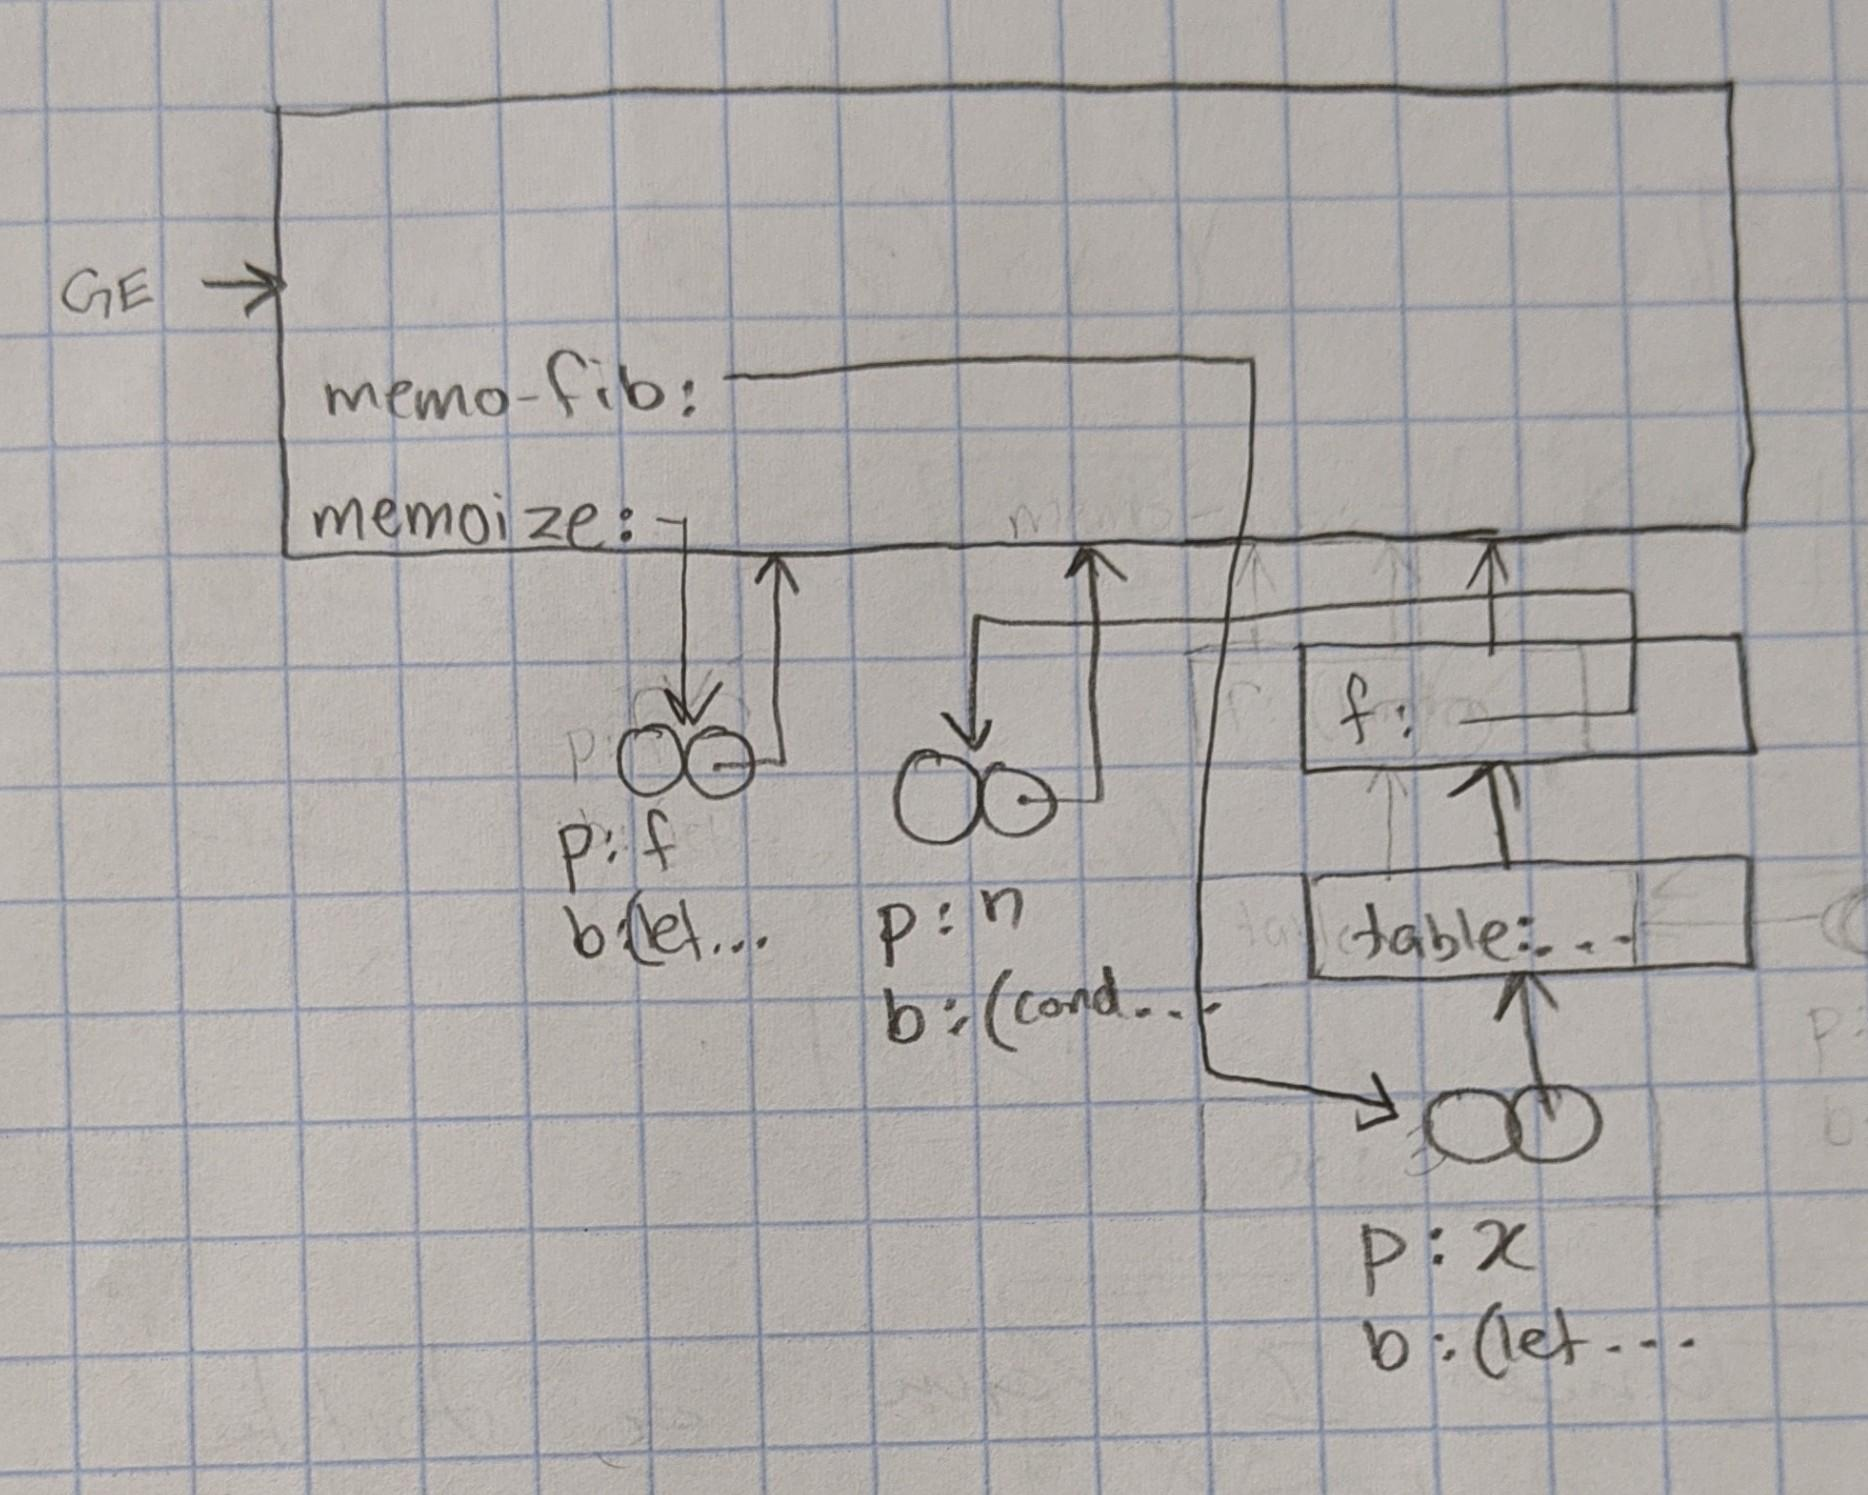 GE
memo-fib:
memoize:
f:
p: f
b:(let...
p: n
b:(cond....
table:...
p: x
b:(let...